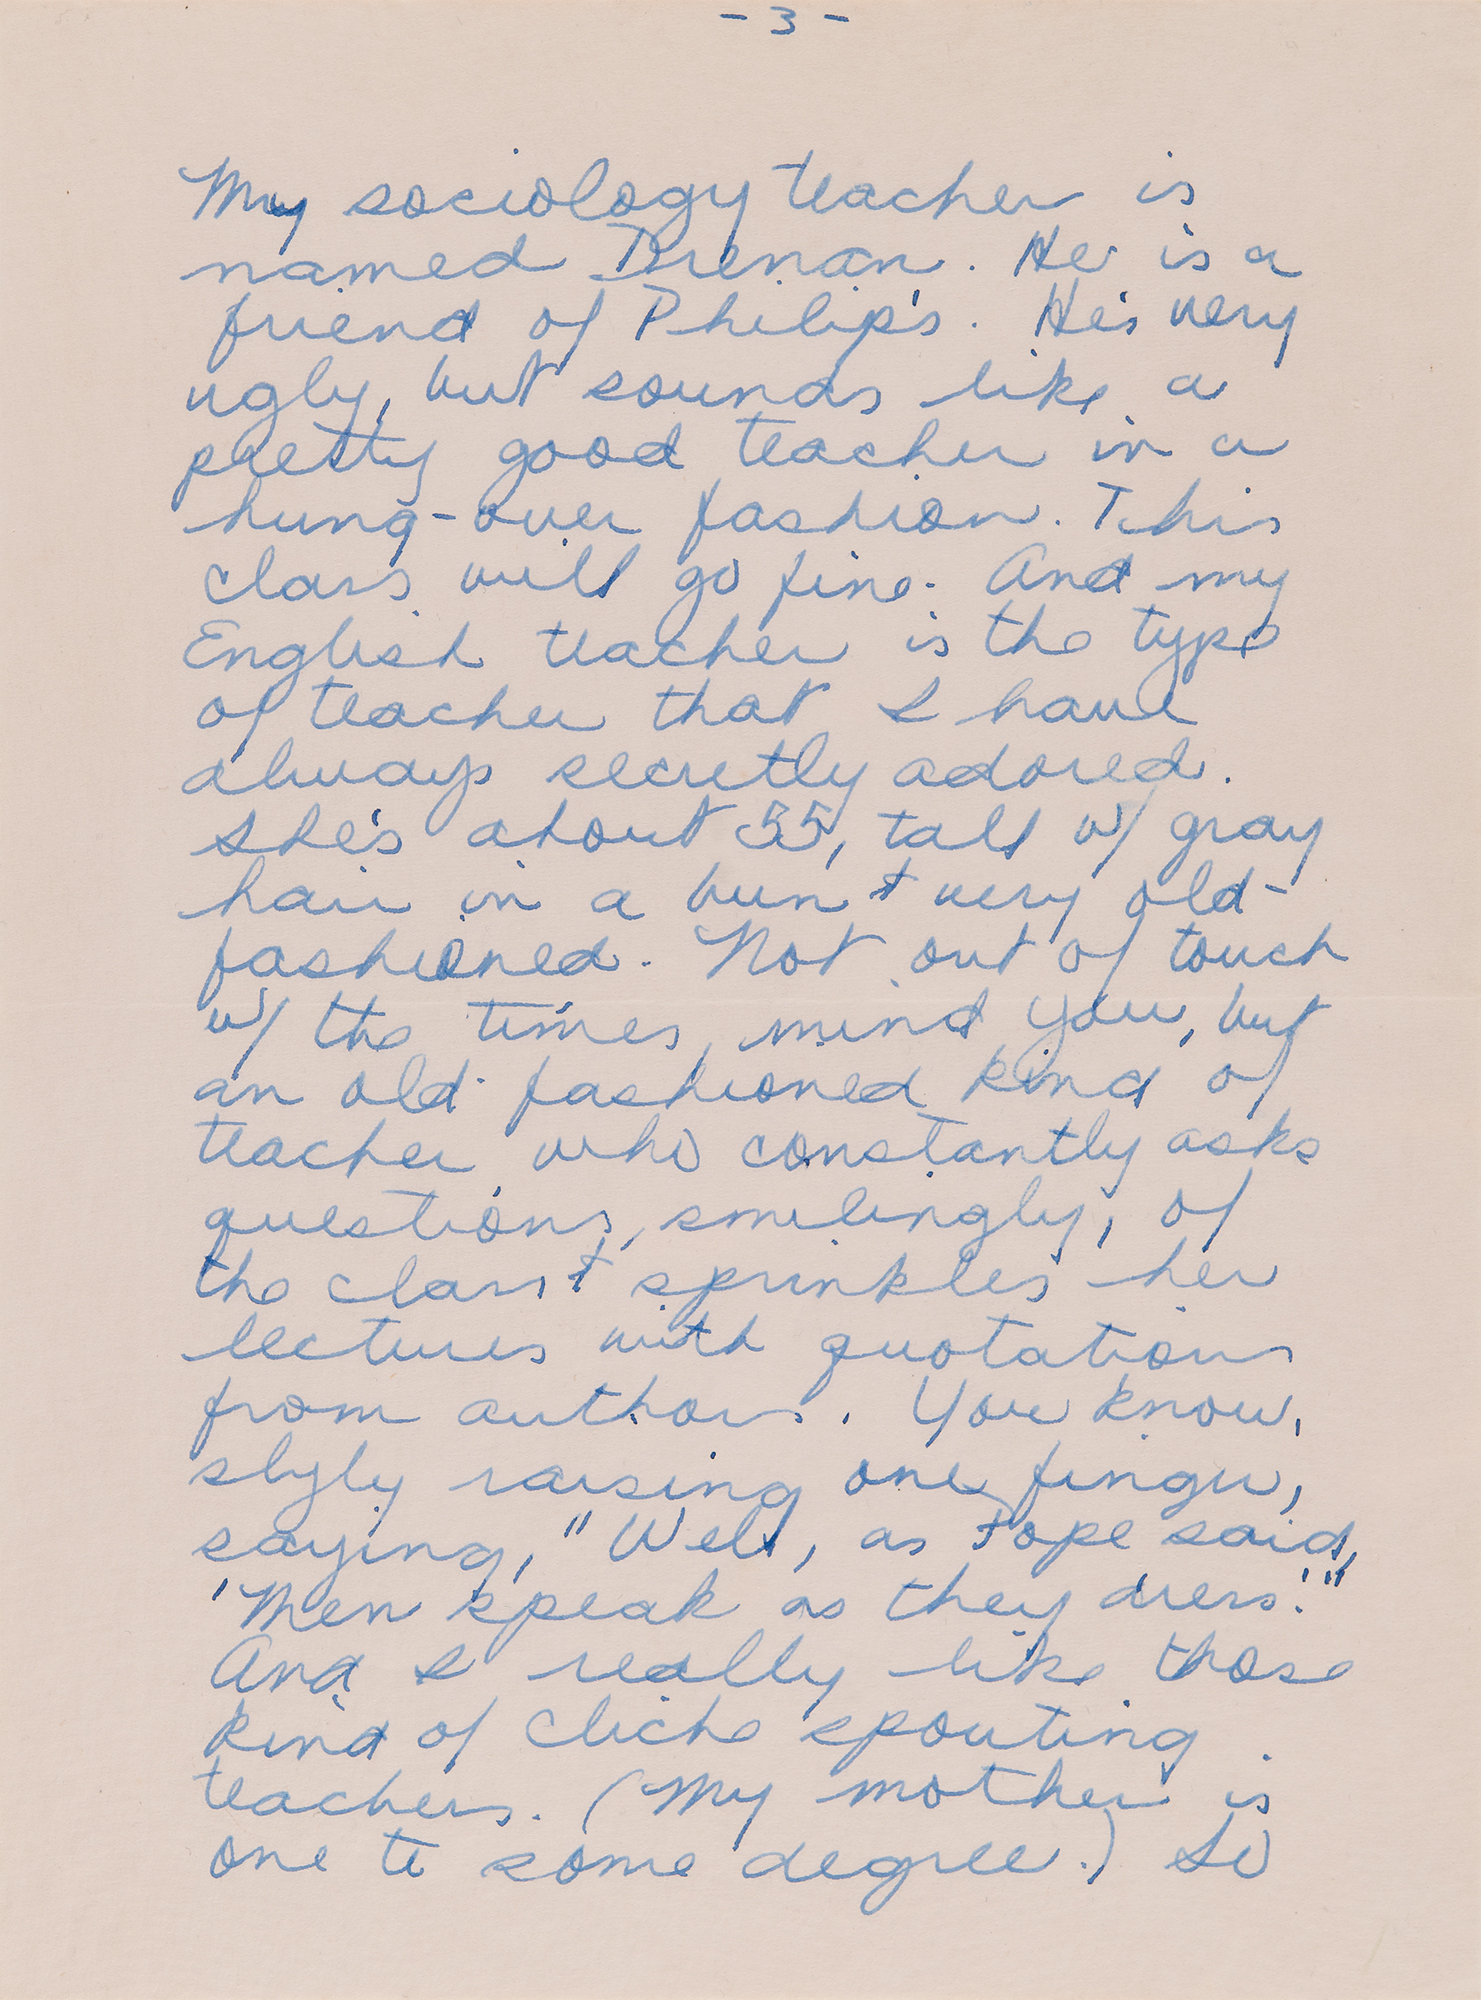 - 3 -
My sociology teacher is
named Drenan. He is a
friend of Philip's. He's very
ugly, but sounds like a
pretty good teacher in a
hung-over fashion. This
class will go fine. And my
English teacher is the type
of teacher that I have
always secretly adored.
She's about 55, tall w/ gray
hair in a bun + very old-
fashioned. Not out of touch
w/ the times, mind you, but
an old-fashioned kind of
teacher who constantly asks
questions, smilingly, of
the class + sprinkles her
lectures with quotations
from authors. You know,
slyly raising one finger,
saying, "Well, as Pope said,
'Men speak as they dress.'"
And I really like those
kind of cliche spouting
teachers. (My mother is
one to some degree.) So